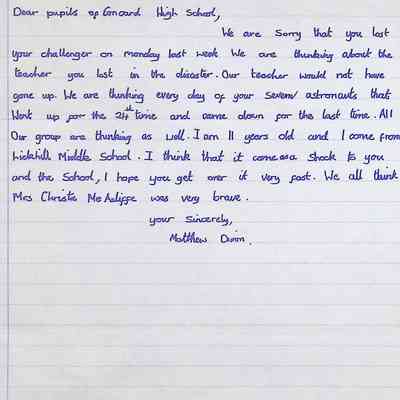 Dear pupils of Concord High School,
We are Sorry that you lost
your challenger on monday last week We are thinking about the
teacher you lost in the disaster. Our teacher would not have
gone up. We are thinking every day of your Seven astronauts that
Went up for the 24th time and came down for the last time. All
Our group are thinking as well. I am 11 years old and I come from
Middle School. I think that it comes as a shock to you
and the School, I hope you get over it very fast. We all think
Mrs Christa was very brave.
your Sincerely,
Matthew Dunn.